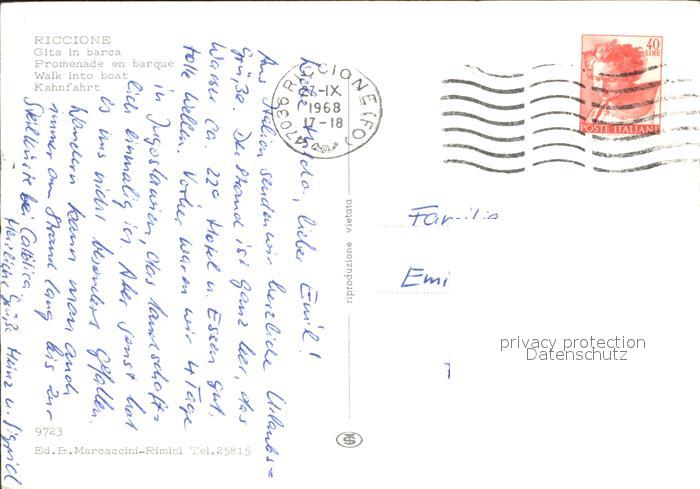 RICCIONE
Gita in barca
Promenade en barque
Walk into boat
Kahnfahrt
47036 RICCIONE (FO)
17-IX.
1968
17-18
40
LIRE
POSTE ITALIANE
Liebe Hulda, lieber Emil!
Aus Italien senden wir herzliche Urlaubs=
grüße. Der Strand ist ganz leer, das
Wasser ca. 22° Hotel u. Essen gut,
tolle Wellen. Vorher waren wir 4 Tage
in Jugoslawien, das landschaft=
lich einmalig ist. Aber sonst hat
es uns nicht besonders gefallen.
Wandern kann man auch
immer am Strand lang bis zur
Steilküste bei Catolica.
Herzliche Grüße Heinz u. Sigrid
riproduzione vietata
Familie
Emi
privacy protection
Datenschutz
9723
Ed.B.Marcaccini-Rimini Tel.25815